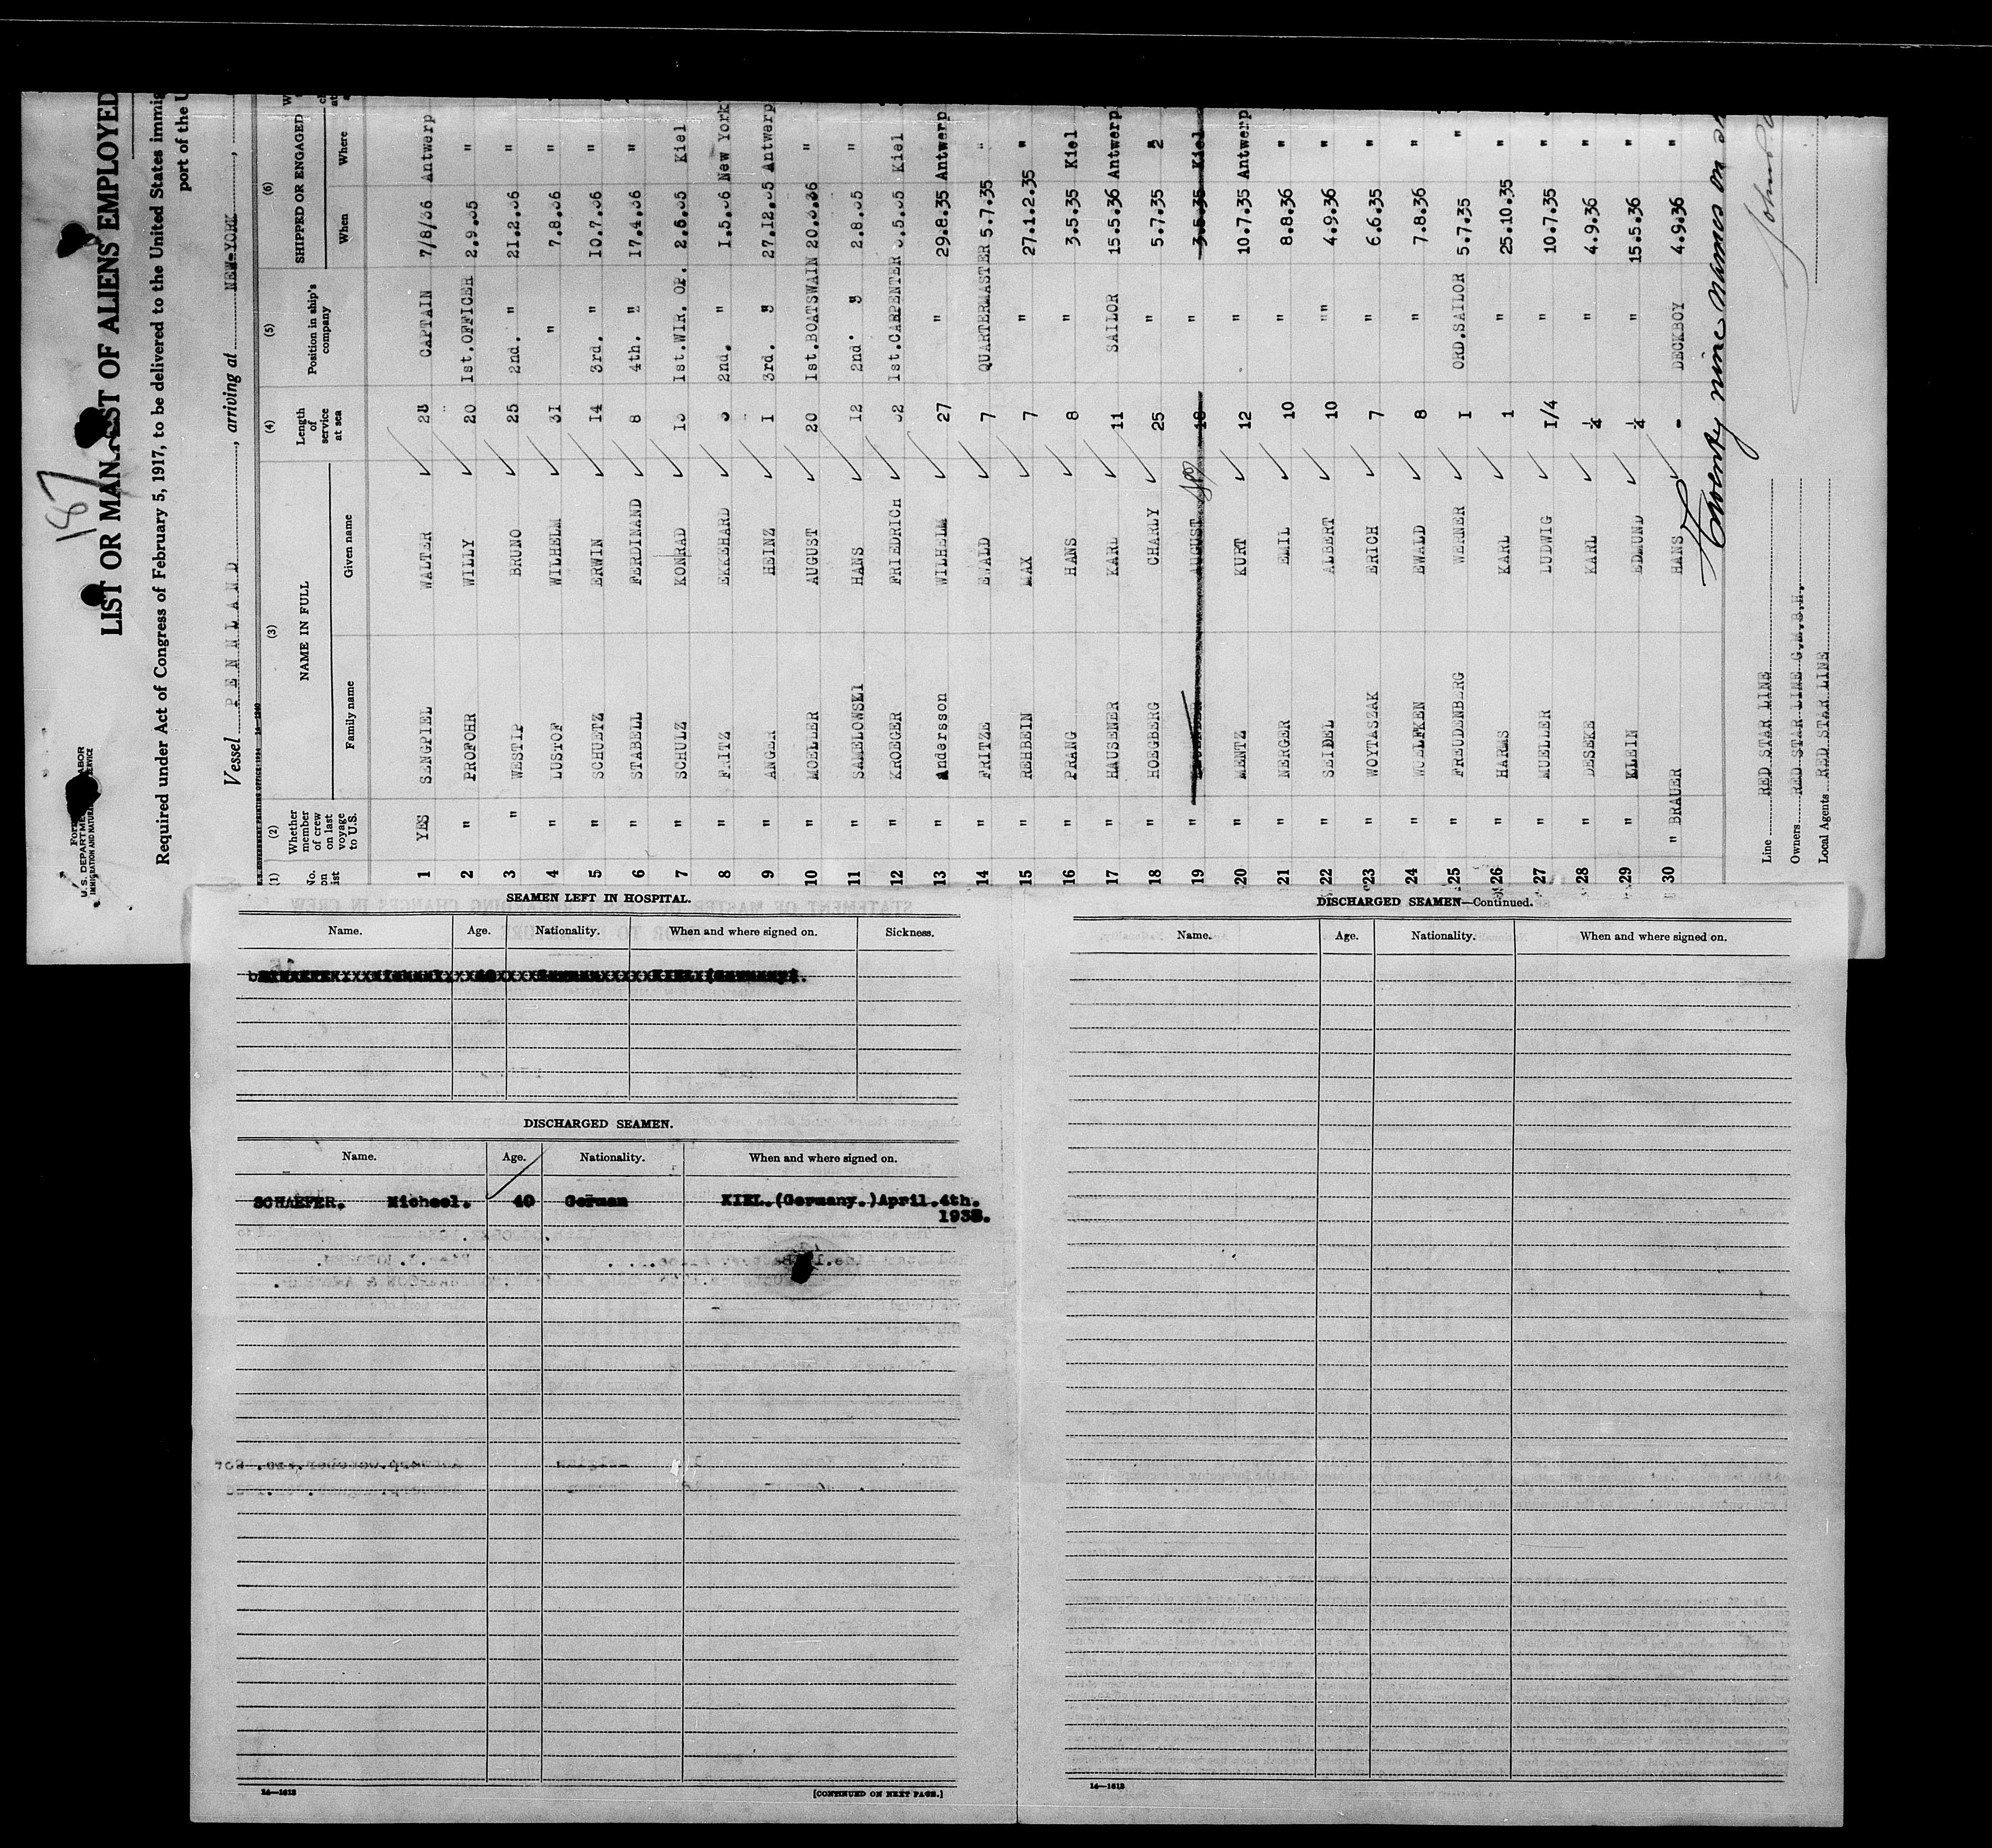 187
LIST OR MANIFEST OF ALIENS EMPLOYED
Required under Act of Congress of February 5, 1917, to be delivered to the United States immig
port of the U
U. S. DEPARTMENT LABOR
IMMIGRATION AND NATUR SERVICE
Vessel PENNLAND, arriving at NEW-YORK,
(1) (2) (3) (4) (5) (6)
No. on list Whether member of crew on last voyage to U.S. NAME IN FULL Length of service at sea Position in ship's company SHIPPED OR ENGAGED
Family name Given name When Where
1 YES SENGPIEL WALTER CAPTAIN 7/8/36 Antwerp
2 " PROFOHR WILLY 20 1st.OFFICER 2.9.35 "
3 " WESTIP BRUNO 25 2nd. " 21.2.36 "
4 " LUSTOF WILHELM 31 " 7.8.36 "
5 " SCHUETZ ERWIN 14 3rd. " 10.7.36 "
6 " STABELL FERDINAND 8 4th. " 17.4.36 "
7 " SCHULZ KONRAD 1st.WIR. OP. 2.6.35 Kiel
8 " FRITZ EKKEHARD 3 2nd. " 1.5.36 New York
9 " ANGER HEINZ 1 3rd. " 27.12.35 Antwerp
10 " MOELLER AUGUST 20 1st.BOATSWAIN 20.3.36 "
11 " SAMELOWSKI HANS 12 2nd. " 2.8.35 "
12 " KROEGER FRIEDRICH 32 1st.CARPENTER 3.5.35 Kiel
13 " Andersson WILHELM 27 " 29.8.35 Antwerp
14 " FRITZE EWALD 7 QUARTERMASTER 5.7.35 "
15 " REHBEIN MAX 7 " 27.1.2.35 "
16 " PRANG HANS 8 " 3.5.35 Kiel
17 " HAUSENER KARL 11 SAILOR 15.5.36 Antwerp
18 " HOEGBERG CHARLY 25 " 5.7.35 "
19 " AUGUST 18 " 3.5.35 Kiel
20 " MENTZ KURT 12 " 10.7.35 Antwerp
21 " NERGER EMIL 10 " 8.8.36 "
22 " SEIDEL ALBERT 10 "" 4.9.36 "
23 " WOYTASZAK ERICH 7 " 6.6.35 "
24 " WULFKEN EWALD 8 " 7.8.36 "
25 " FREUDENBERG WERNER I ORD.SAILOR 5.7.35 "
26 " HARMS KARL 1 " 25.10.35 "
27 " MUELLER LUDWIG I/4 " 10.7.35 "
28 " DESEKE KARL ¼ " 4.9.36 "
29 " KLEIN EDMUND ¼ " 15.5.36 "
30 " BRAUER HANS - DECKBOY 4.9.36 "
Twenty nine names on
John
Line RED STAR LINE
Owners RED STAR LINE G.M.B.H.
Local Agents RED STAR LINE
SEAMEN LEFT IN HOSPITAL.
Name. Age. Nationality. When and where signed on. Sickness.
DISCHARGED SEAMEN.
Name. Age. Nationality. When and where signed on.
SCHAEFER. Micheel. 40 German KIEL.(Germany.)April.4th.
1935.
14—1613
[CONTINUED ON NEXT PAGE.]
DISCHARGED SEAMEN—Continued.
Name. Age. Nationality. When and where signed on.
14—1613